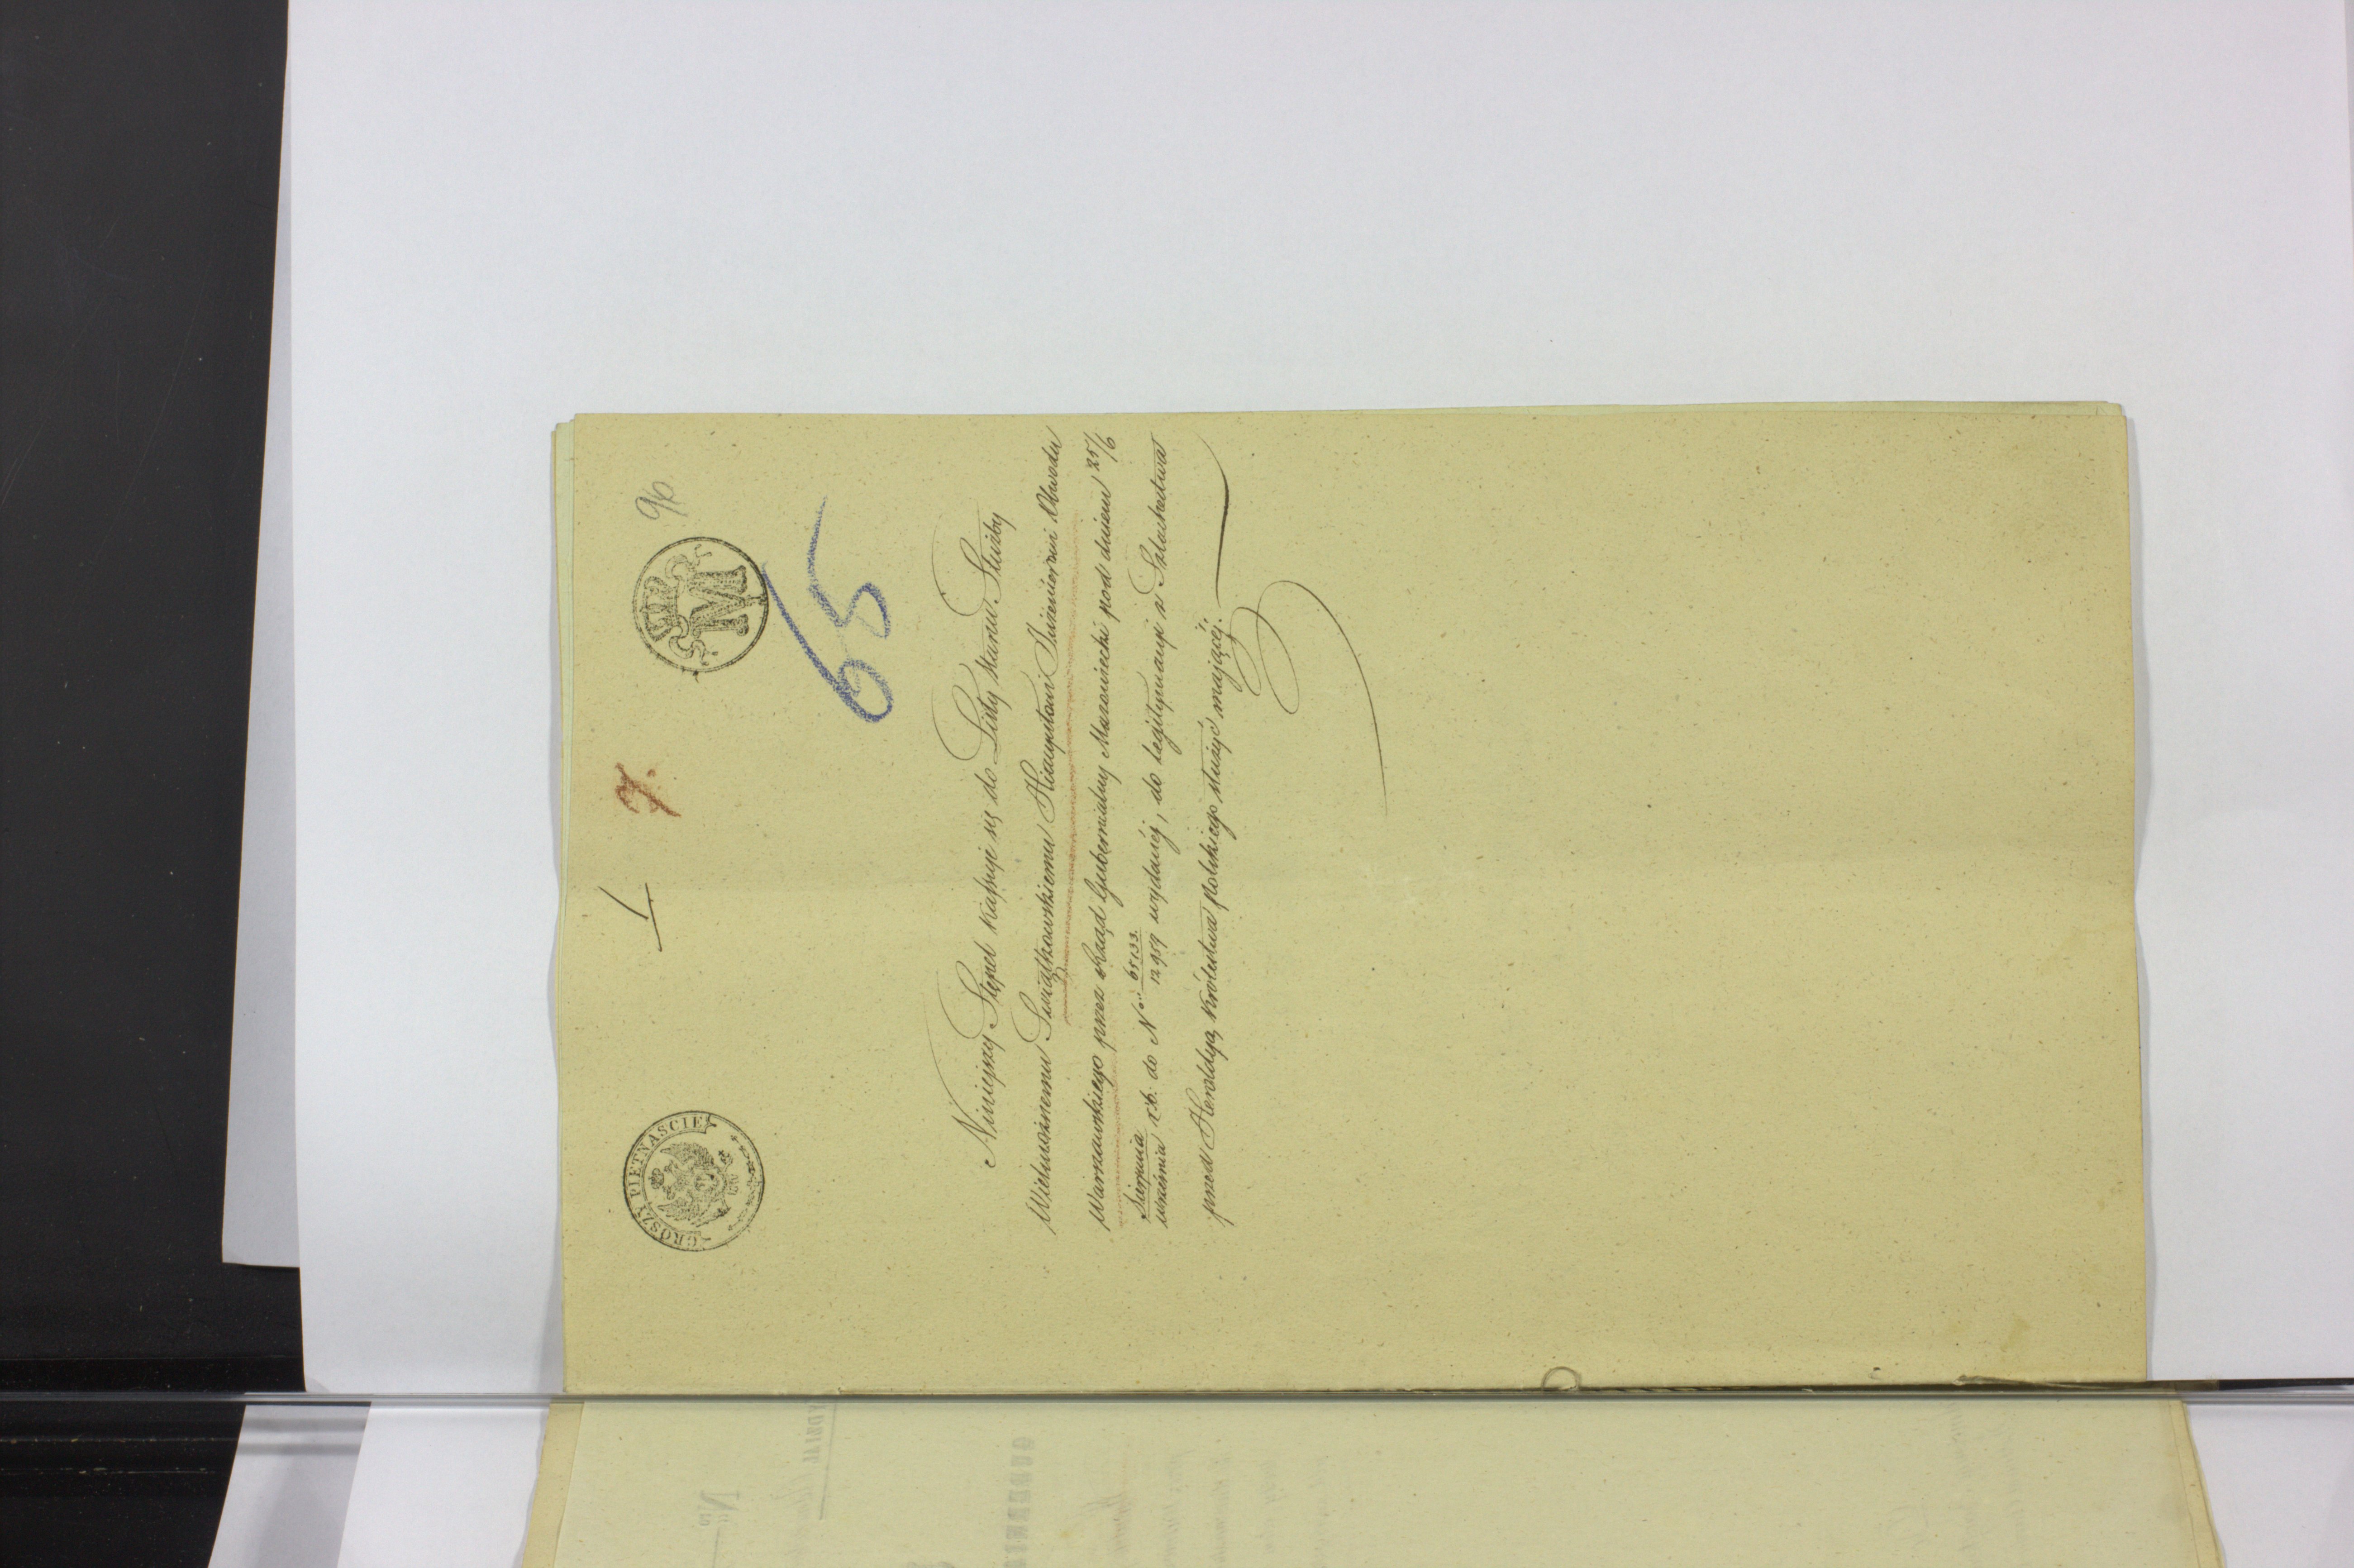 I
7.
96
GROSZY PIETNASCIE
65
Niniejszy Stępel kassuje się do Listy stanu Służby
Wielmożnemu Świątkowskiemu Hiacyntowi Inżenierowi Obwodu
Warszawskiego przez Rząd Gubernialny Mazowiecki pod dniem 25/6
Sierpnia
września r.b. do No 65133.
12959 wydanéj, do legitymacyi z Szlachectwa
przed Heroldyą Królestwa polskiego służyć mającéj.